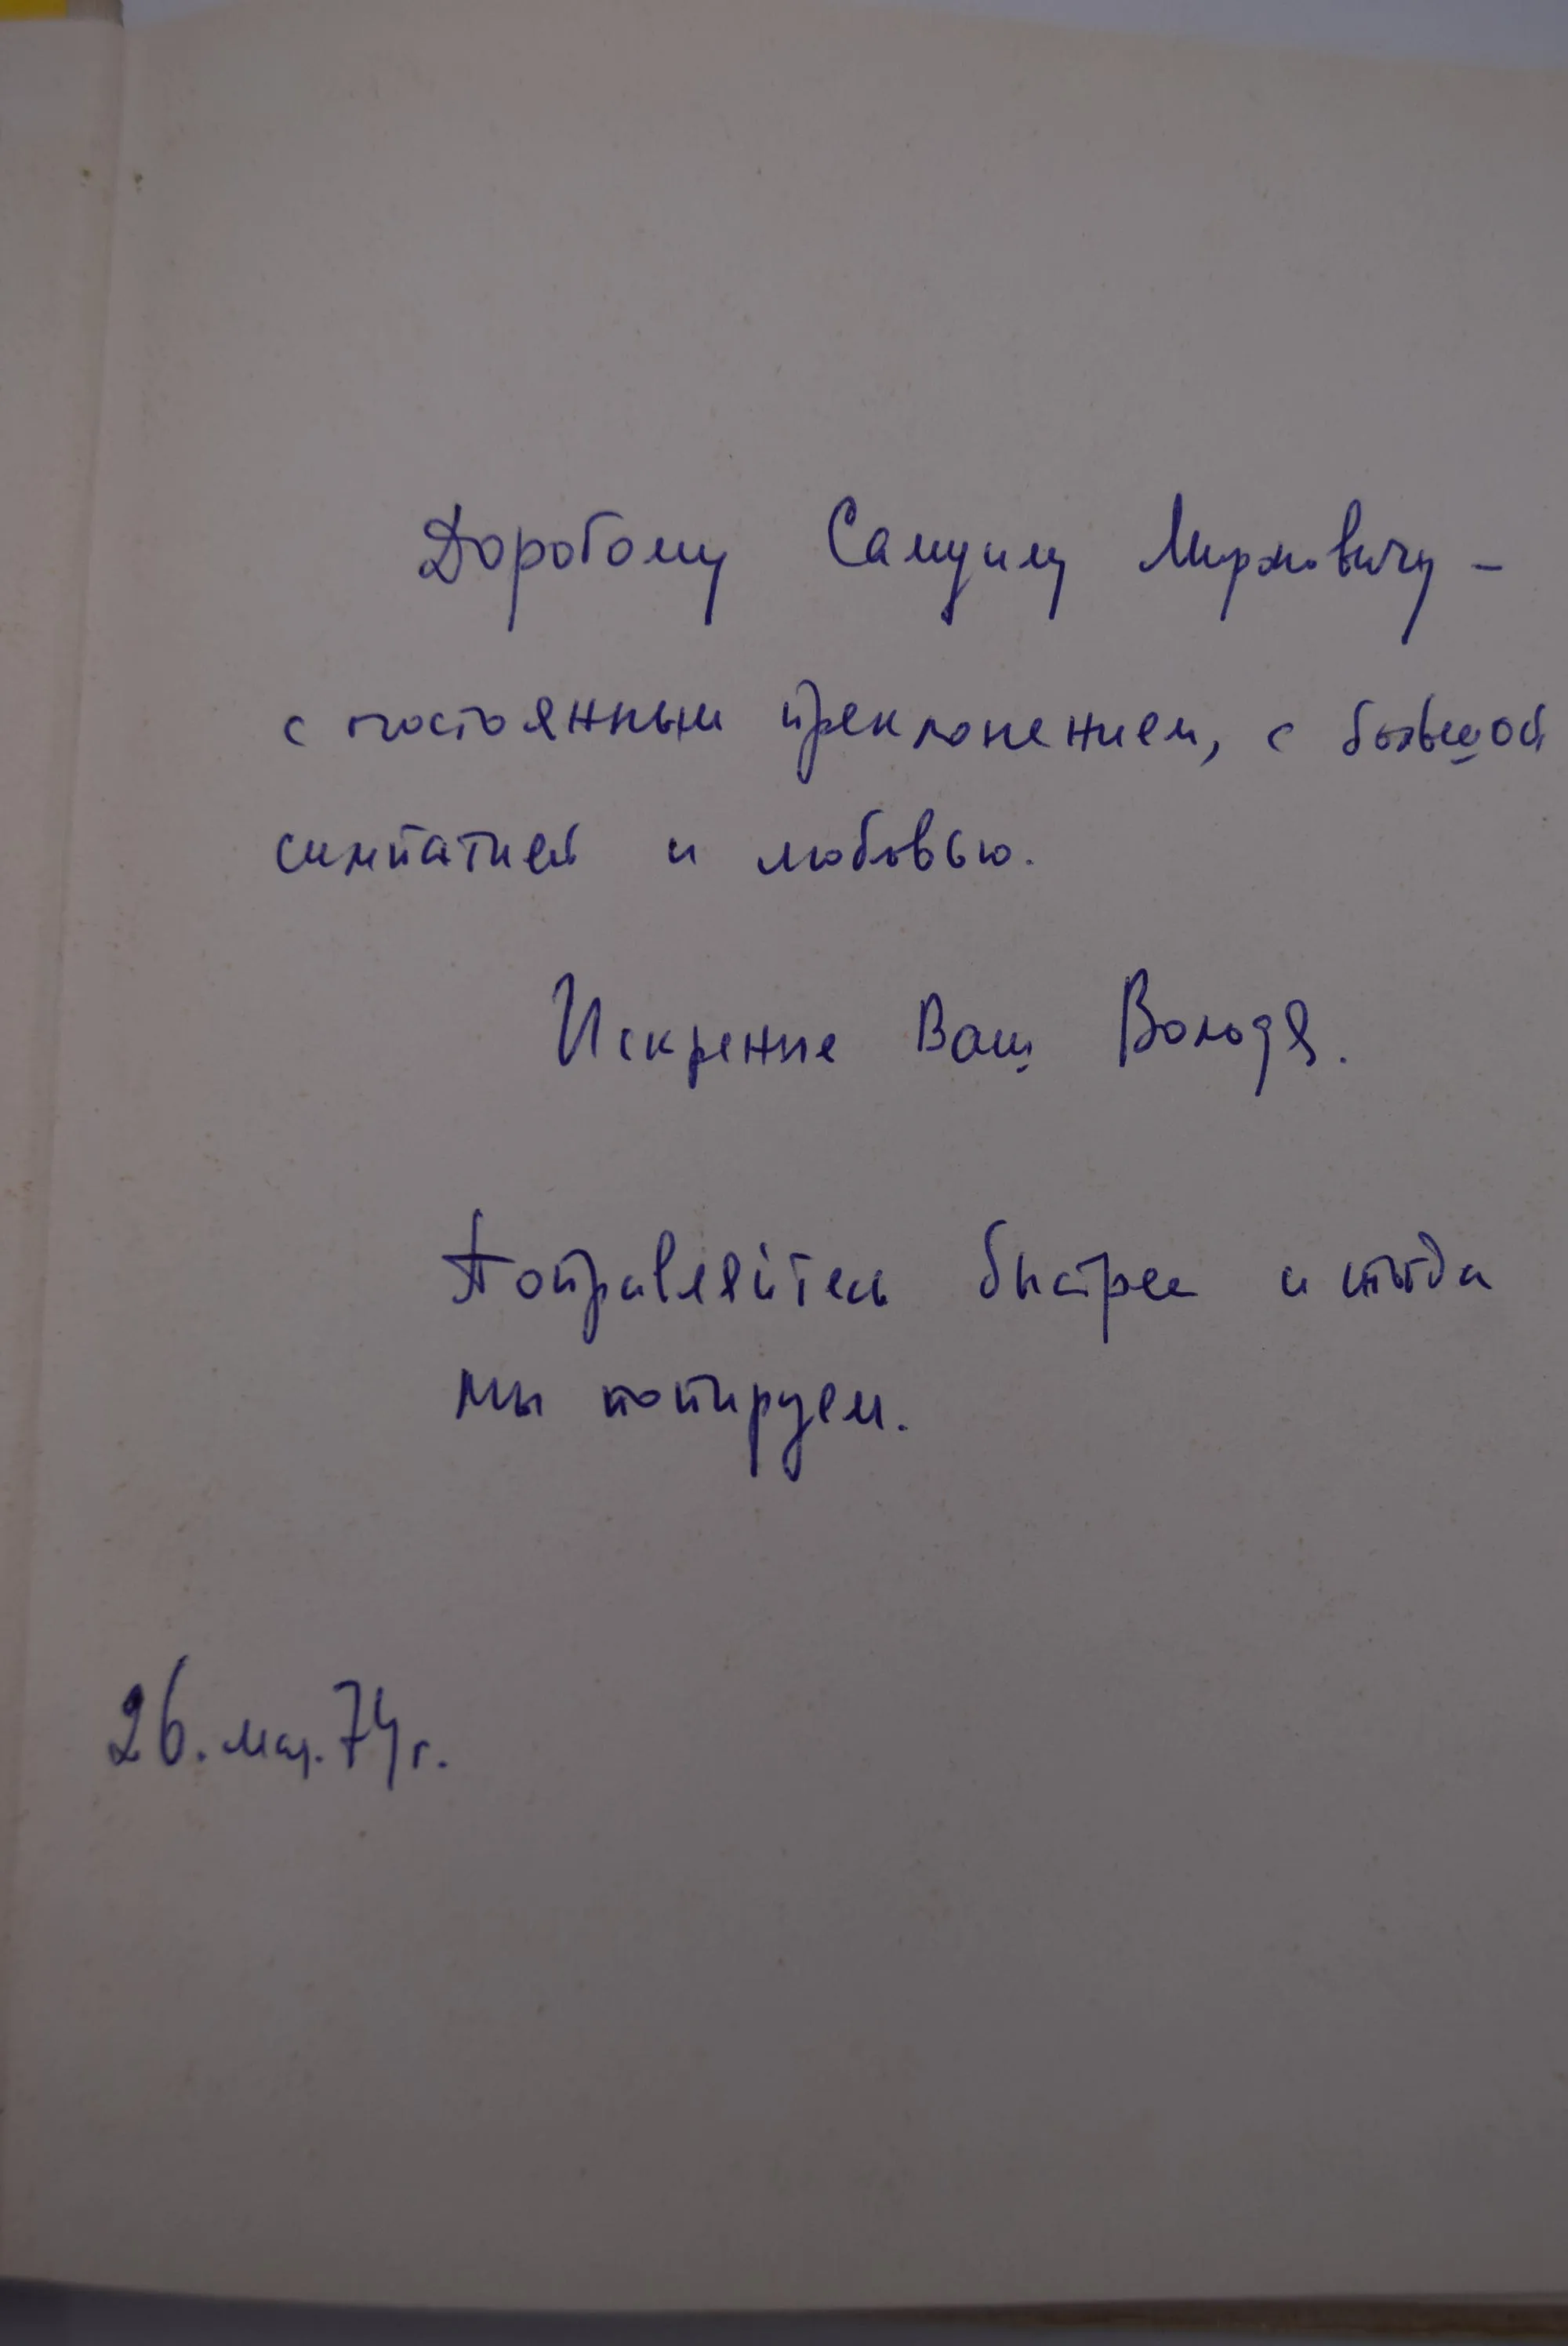 Дорогому Самуилу Мироновичу –
с постоянным преклонением, с большой
симпатией и любовью.
Искренне Ваш Володя.
Поправляйтесь быстрее и тогда
мы попируем.
26. мая. 74 г.